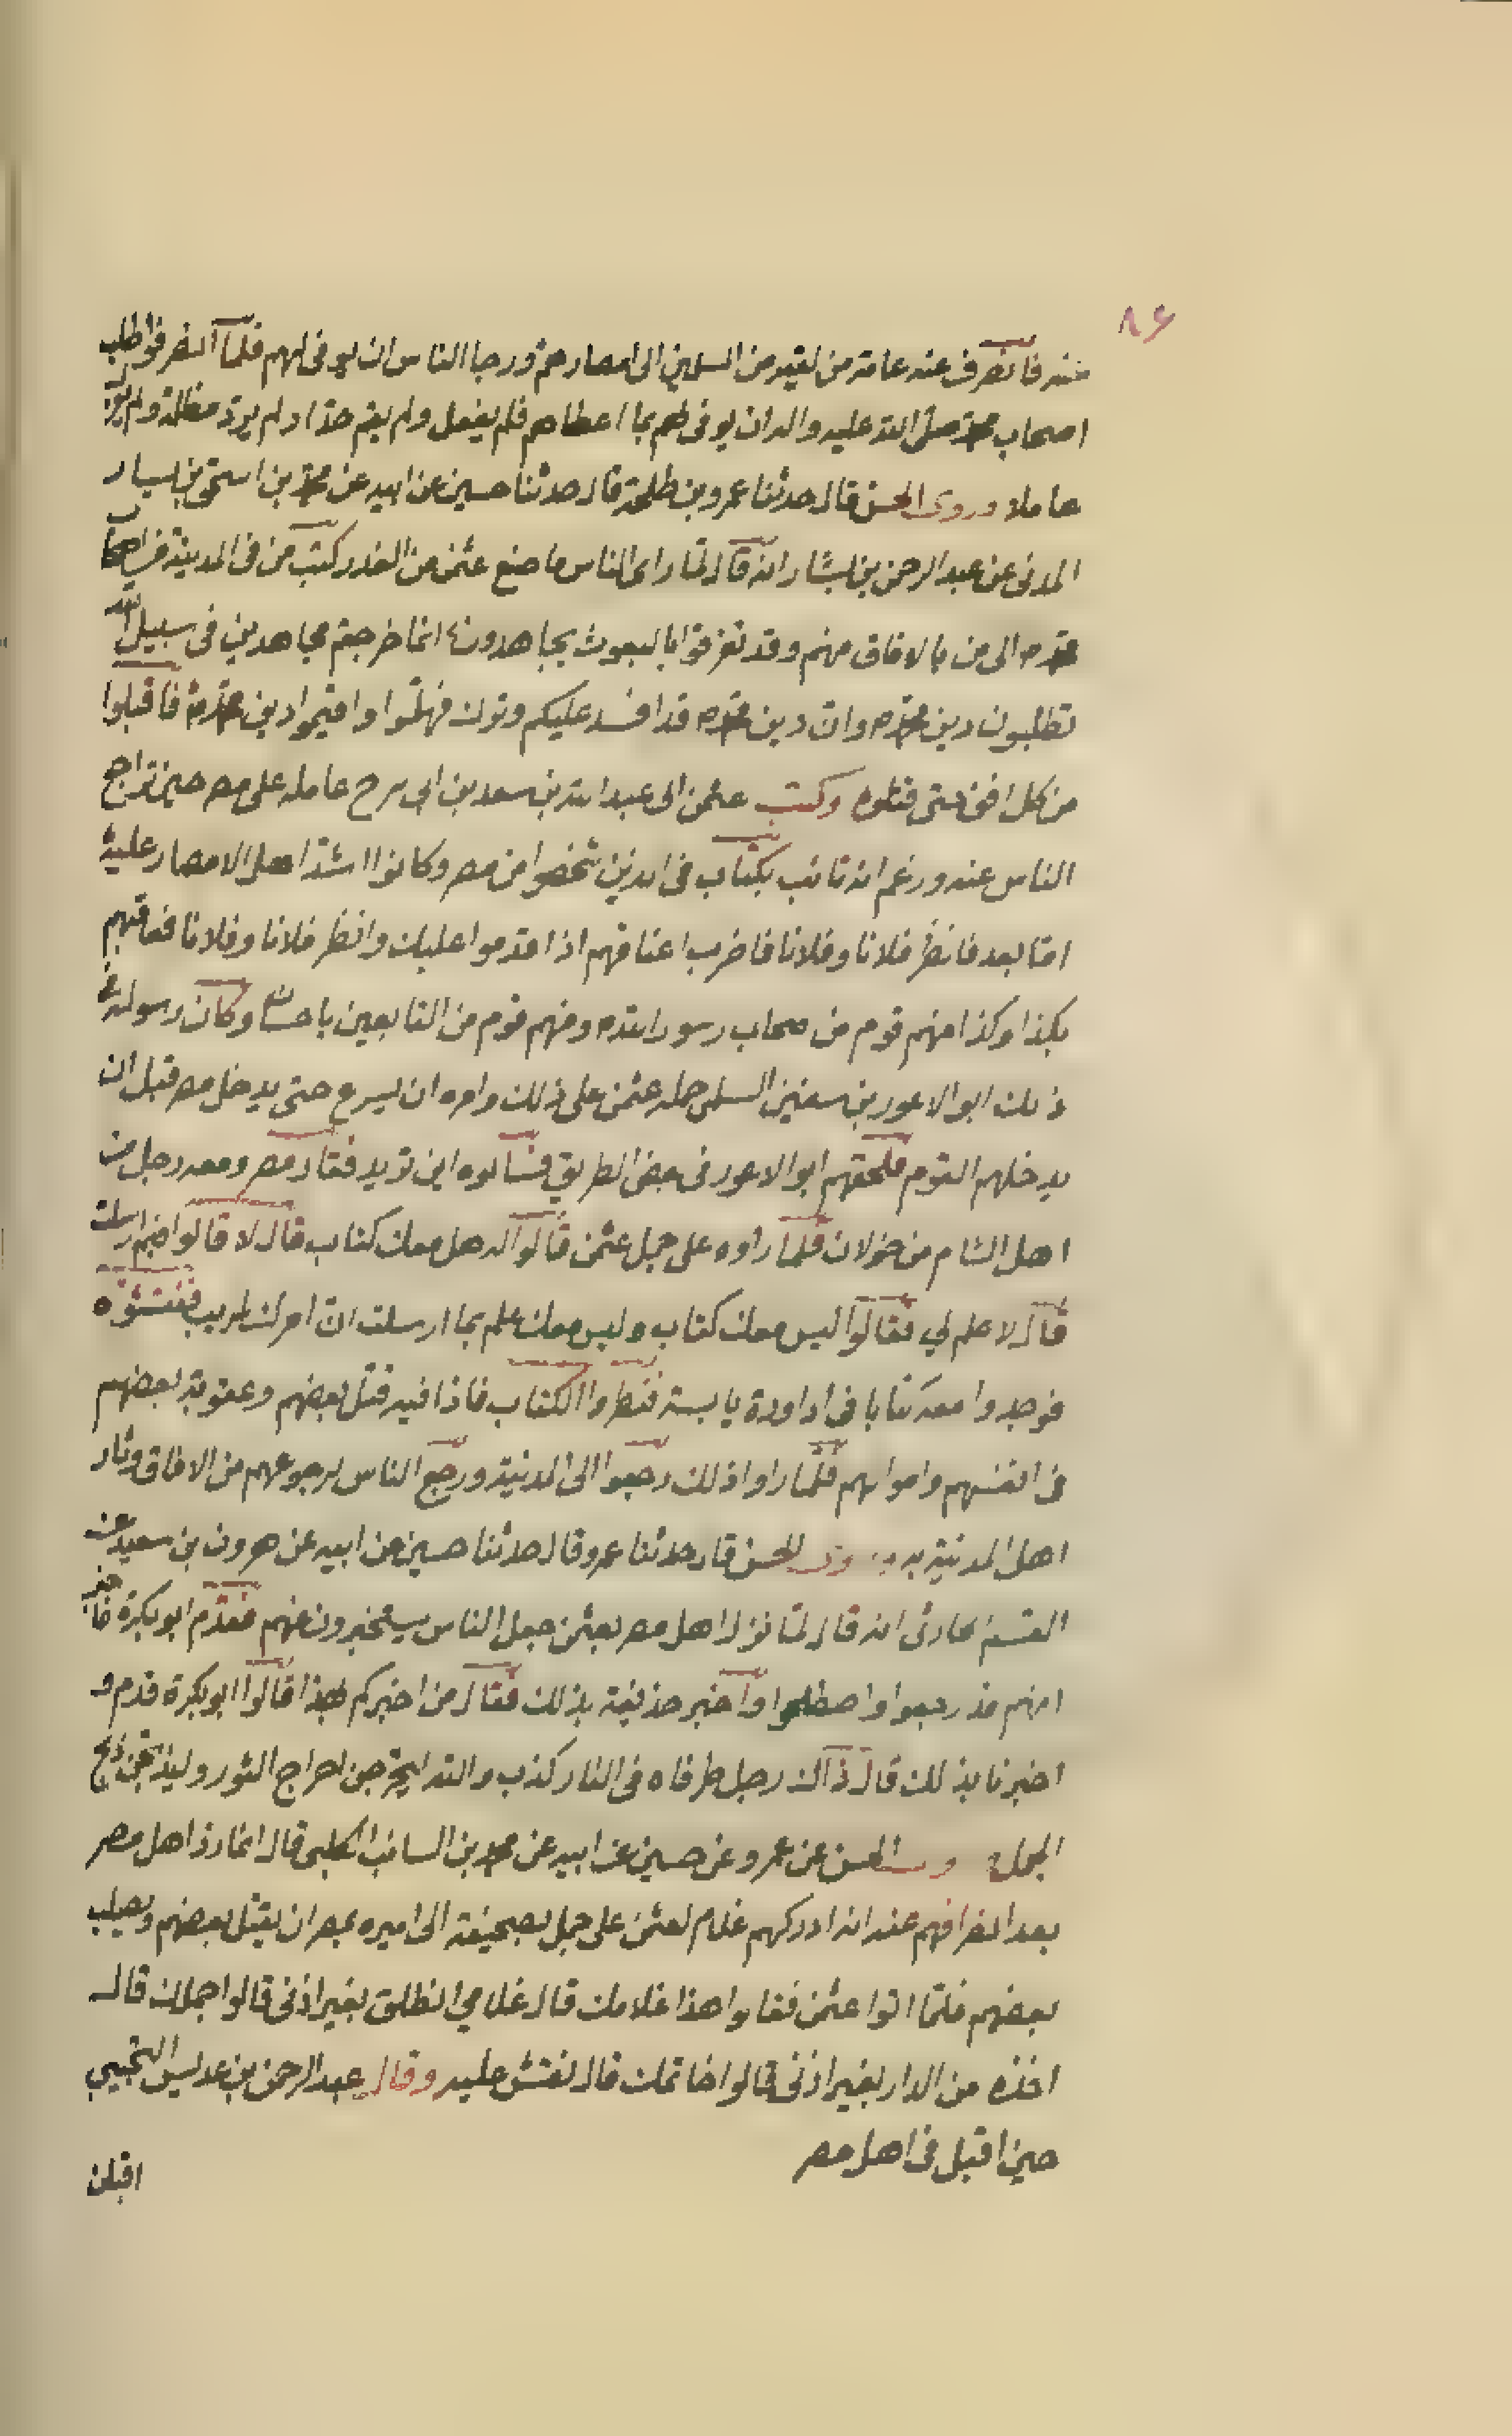 ٨۶
منه فانصرف عنه عامة من لقيه من المسلمين الى امصارهم ورجا الناس ان يوفى لهم فلما انصرفوا طلب
اصحاب محمد صلى الله عليه واله ان يوفى لهم بما اعطاهم فلم يفعل ولم يقم حدا ولم يرد مظلمة ولم
عاملا وروى الحسن قال حدثنا عمرو بن طلحة قال حدثنا حسين عن ابيه عن محمد بن اسحق بن يسار
المدنى عن عبد الرحمن بن يشار انه قال لما راى الناس ما صنع عثمن من الغدر كتب من فى المدينة من اصحاب
محمد ص الى من بالافاق منهم وقد تفرقوا بالبعوث يجاهدون انما خرجتم مجاهدين فى سبيل الله
تطلبون دين محمد ص وان دين محمد ص قد افسد عليكم وترك فهلموا واقيموا دين محمد ص فاقبلوا
من كل افق حتى قتلوه وكتب عثمن الى عبد الله بن سعد بن ابى سرح عامله على مصر حين تراجع
الناس عنه وزعم انه تائب بكتاب فى الذين شخصوا من مصر وكانوا اشد اهل الامصار عليه
اما بعد فانظر فلانا وفلانا فاضرب اعناقهم اذا قدموا عليك وانظر فلانا وفلانا فعاقبهم
بكذا وكذا منهم قوم من صحاب رسول الله ص ومنهم قوم من التابعين باحسان وكان رسوله فى
ذلك ابو الاعور بن سفين السلمى حمله عثمن على ذلك وامره ان يسرع حتى يدخل مصر قبل ان
يدخلهم القوم فلحقهم ابو الاعور فى بعض الطريق فسالوه اين تريد فقال مصر ومعه رجل من
اهل الشام من خولان فلما راوه على جمل عثمن قالوا له هل معك كتاب قال لا قالوا فيم ارسلت
قال لا علم لي فقالوا ليس معك كتاب وليس معك علم بما ارسلت ان امرك لمريب ففتشوه
فوجدوا معه كتابا فى اداودة يابسة فنظروا الكتاب فاذا فيه قتل بعضهم وعقوبة بعضهم
فى انفسهم واموالهم فلما راوا ذلك رجعوا الى المدينة ورجع الناس لرجوعهم من الافاق وثار
اهل المدينة به وروى الحسن قال حدثنا عمرو قال حدثنا حسين عن ابيه عن هرون بن سعيد عن
القسم بحارثى انه قال لما نزل اهل مصر بعثمن جعل الناس يستخبرون عنهم فقدم ابو بكرة فاخبر
انهم قد رجعوا واصطلحوا واخبر حذيفة بذلك فقال من اخبركم بهذا قالوا ابو بكرة قدم و
اخبرنا بذلك قال ذاك رجل طرفاه فى النار كذب والله ليخرجن اخراج الثور وليذبحن ذبح
الجمل الحسن عن عمرو عن حسين عن ابيه عن محمد بن السائب الكلبى قال انما رد اهل مصر
بعد انصرافهم عنه انه ادركهم غلام لعثمن على جمل بصحيفة الى اميره بمصر ان يقتل بعضهم ويصلب
بعضهم فلما اتوا عثمن فقالوا هذا غلامك قال غلامي انطلق بغير اذنى قالوا جملك قال
اخذه من الدار بغير اذنى قالوا خاتمك قال نقش عليه وقال عبد الرحمن بن عديس التجيبي
حين اقبل فى اهل مصر
اقبلن